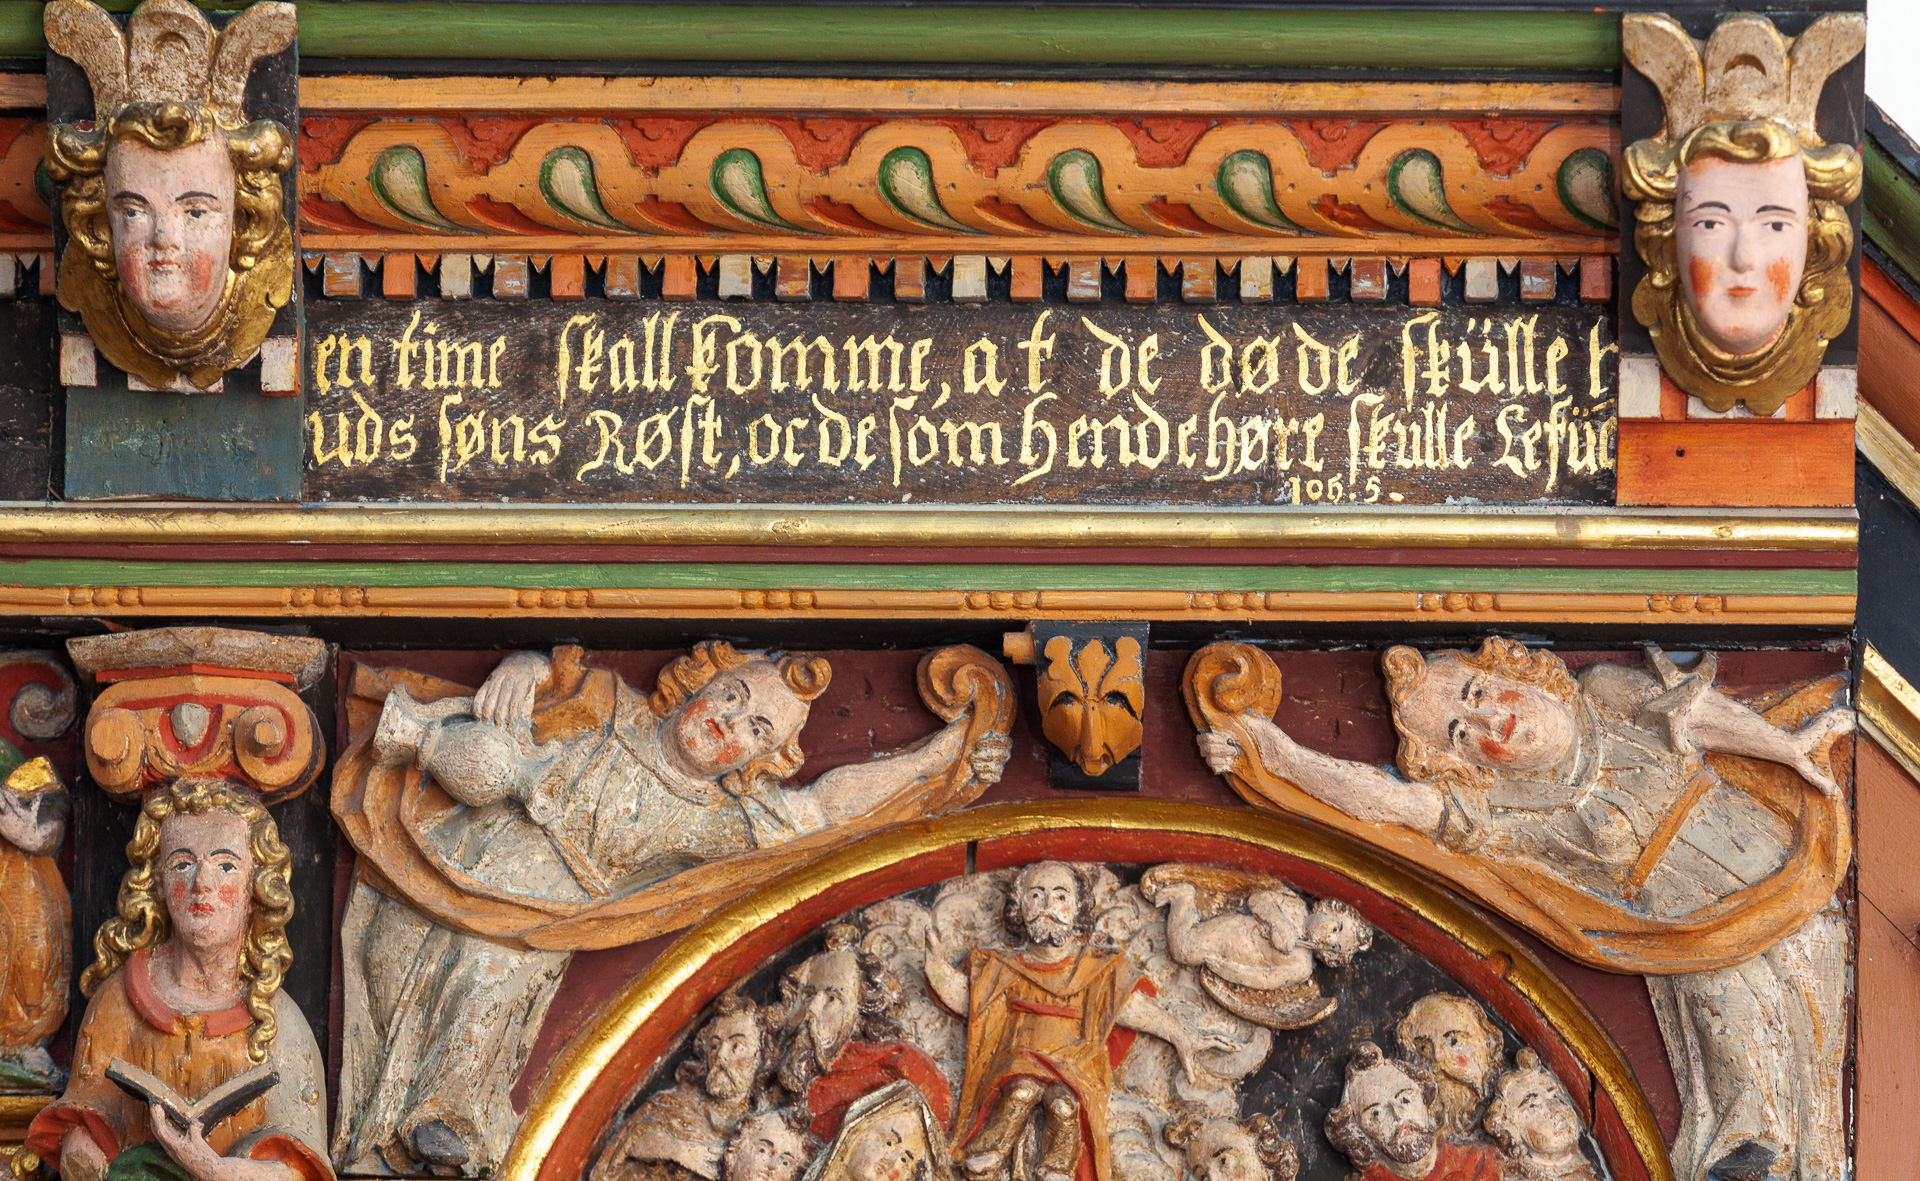 en time skall komme, at de døde skülle h
uds søns Røst, oc de som hende høre skulle Lefüe
Joh: 5.